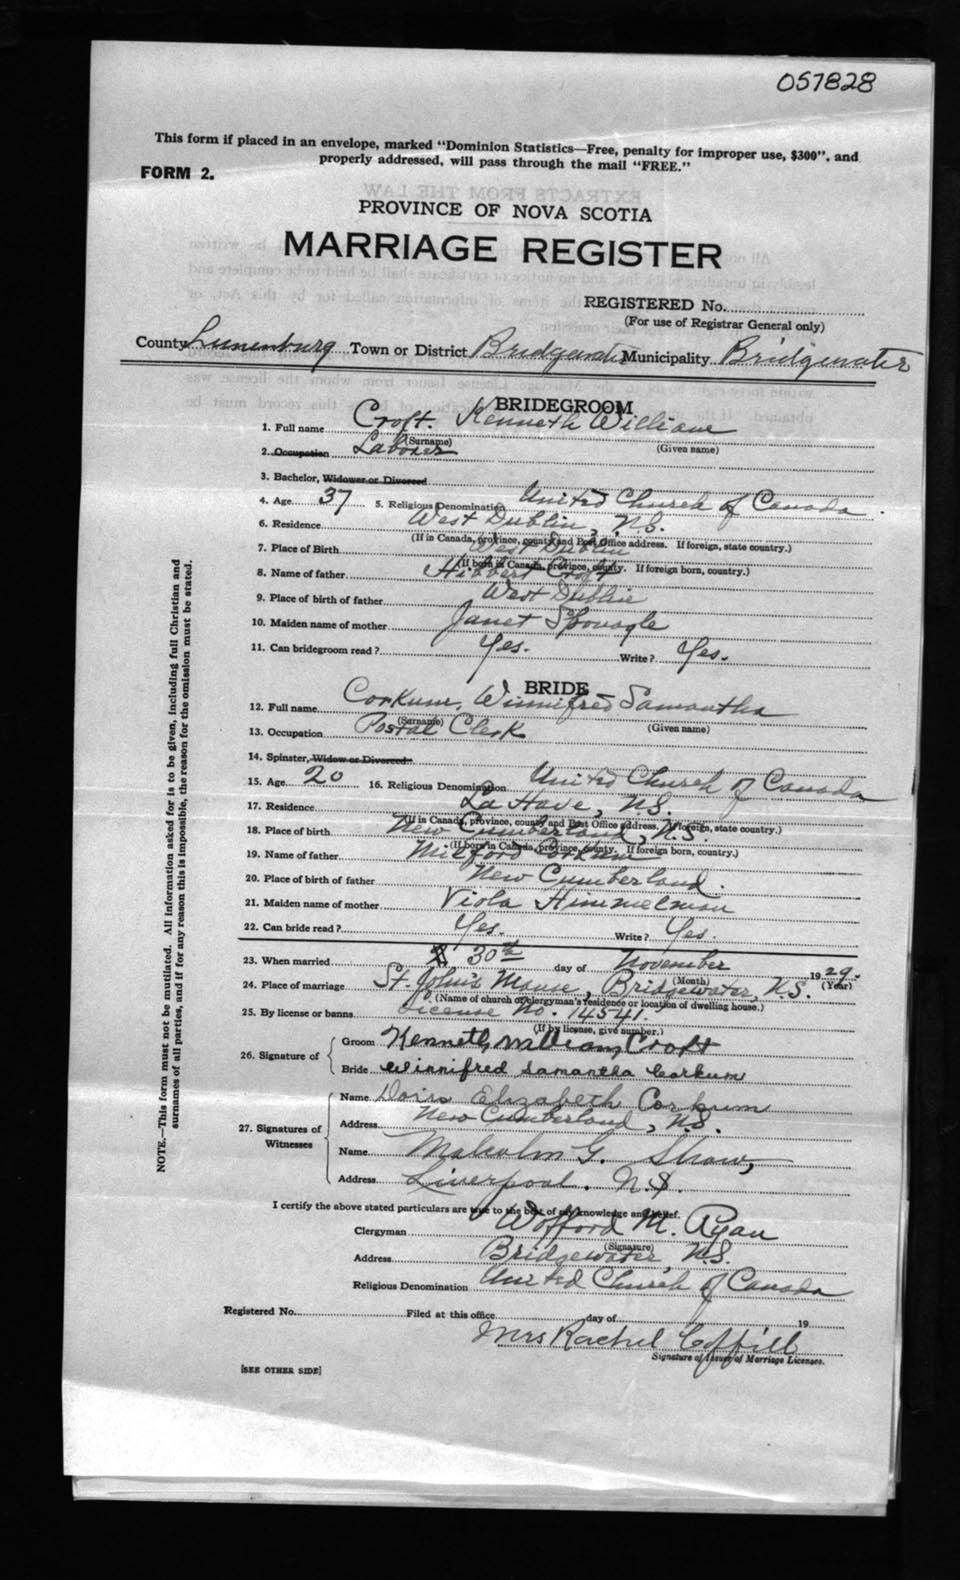 057828
This form if placed in an envelope, marked "Dominion Statistics—Free, penalty for improper use, $300", and
properly addressed, will pass through the mail "FREE."
FORM 2.
PROVINCE OF NOVA SCOTIA
MARRIAGE REGISTER
REGISTERED No.
(For use of Registrar General only)
County Lunenburg Town or District Bridgewater Municipality Bridgewater
BRIDEGROOM
1. Full name Croft. Kenneth William
(Surname) (Given name)
2. Occupation Laborer
3. Bachelor, Widower or Divorced
4. Age 37 5. Religious Denomination United Church of Canada
6. Residence West Dublin, N.S.
(If in Canada, province, county and Post Office address. If foreign, state country.)
7. Place of Birth West Dublin
(If born in Canada, province, county. If foreign born, country.)
8. Name of father Hibbert Croft
9. Place of birth of father West Dublin
10. Maiden name of mother Janet Sponagle
11. Can bridegroom read? Yes. Write? Yes.
BRIDE
12. Full name Corkum, Winnifred Samantha
(Surname) (Given name)
13. Occupation Postal Clerk
14. Spinster, Widow or Divorced
15. Age 20 16. Religious Denomination United Church of Canada
17. Residence La Have, N.S.
(If in Canada, province, county and Post Office address. If foreign, state country.)
18. Place of birth New Cumberland, N.S.
(If born in Canada, province, county. If foreign born, country.)
19. Name of father Milford Corkum
20. Place of birth of father New Cumberland.
21. Maiden name of mother Viola Himmelman
22. Can bride read? Yes. Write? Yes.
23. When married 30th day of November 1929.
(Month) (Year)
24. Place of marriage St. John's Manse, Bridgewater, N.S.
(Name of church or clergyman's residence or location of dwelling house.)
25. By license or banns License No. 14541.
(If by license, give number.)
26. Signature of
Groom Kenneth William Croft
Bride Winnifred Samantha Corkum
27. Signatures of Witnesses
Name Doris Elizabeth Corkum
Address New Cumberland, N.S.
Name Malcolm G. Shaw,
Address Liverpool. N.S.
I certify the above stated particulars are true to the best of my knowledge and belief.
Clergyman Wofford M. Ryan
(Signature)
Address Bridgewater, N.S.
Religious Denomination United Church of Canada
Registered No. Filed at this office day of 19
Mrs Rachel Coffill
Signature of Issuer of Marriage Licenses.
[SEE OTHER SIDE]
NOTE.—This form must not be mutilated. All information asked for is to be given, including full Christian and
surnames of all parties, and if for any reason this is impossible, the reason for the omission must be stated.